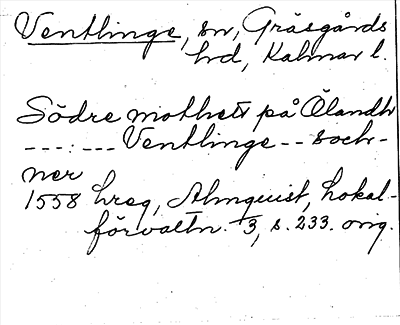 Ventlinge, sn, Gräsgårds
hd, Kalmar l.
Södre mothett på Ölandh
---:--- Ventlinge -- soch-
ner
1558 hreg, Almquist, Lokal-
förvaltn. 3, s. 233. orig.